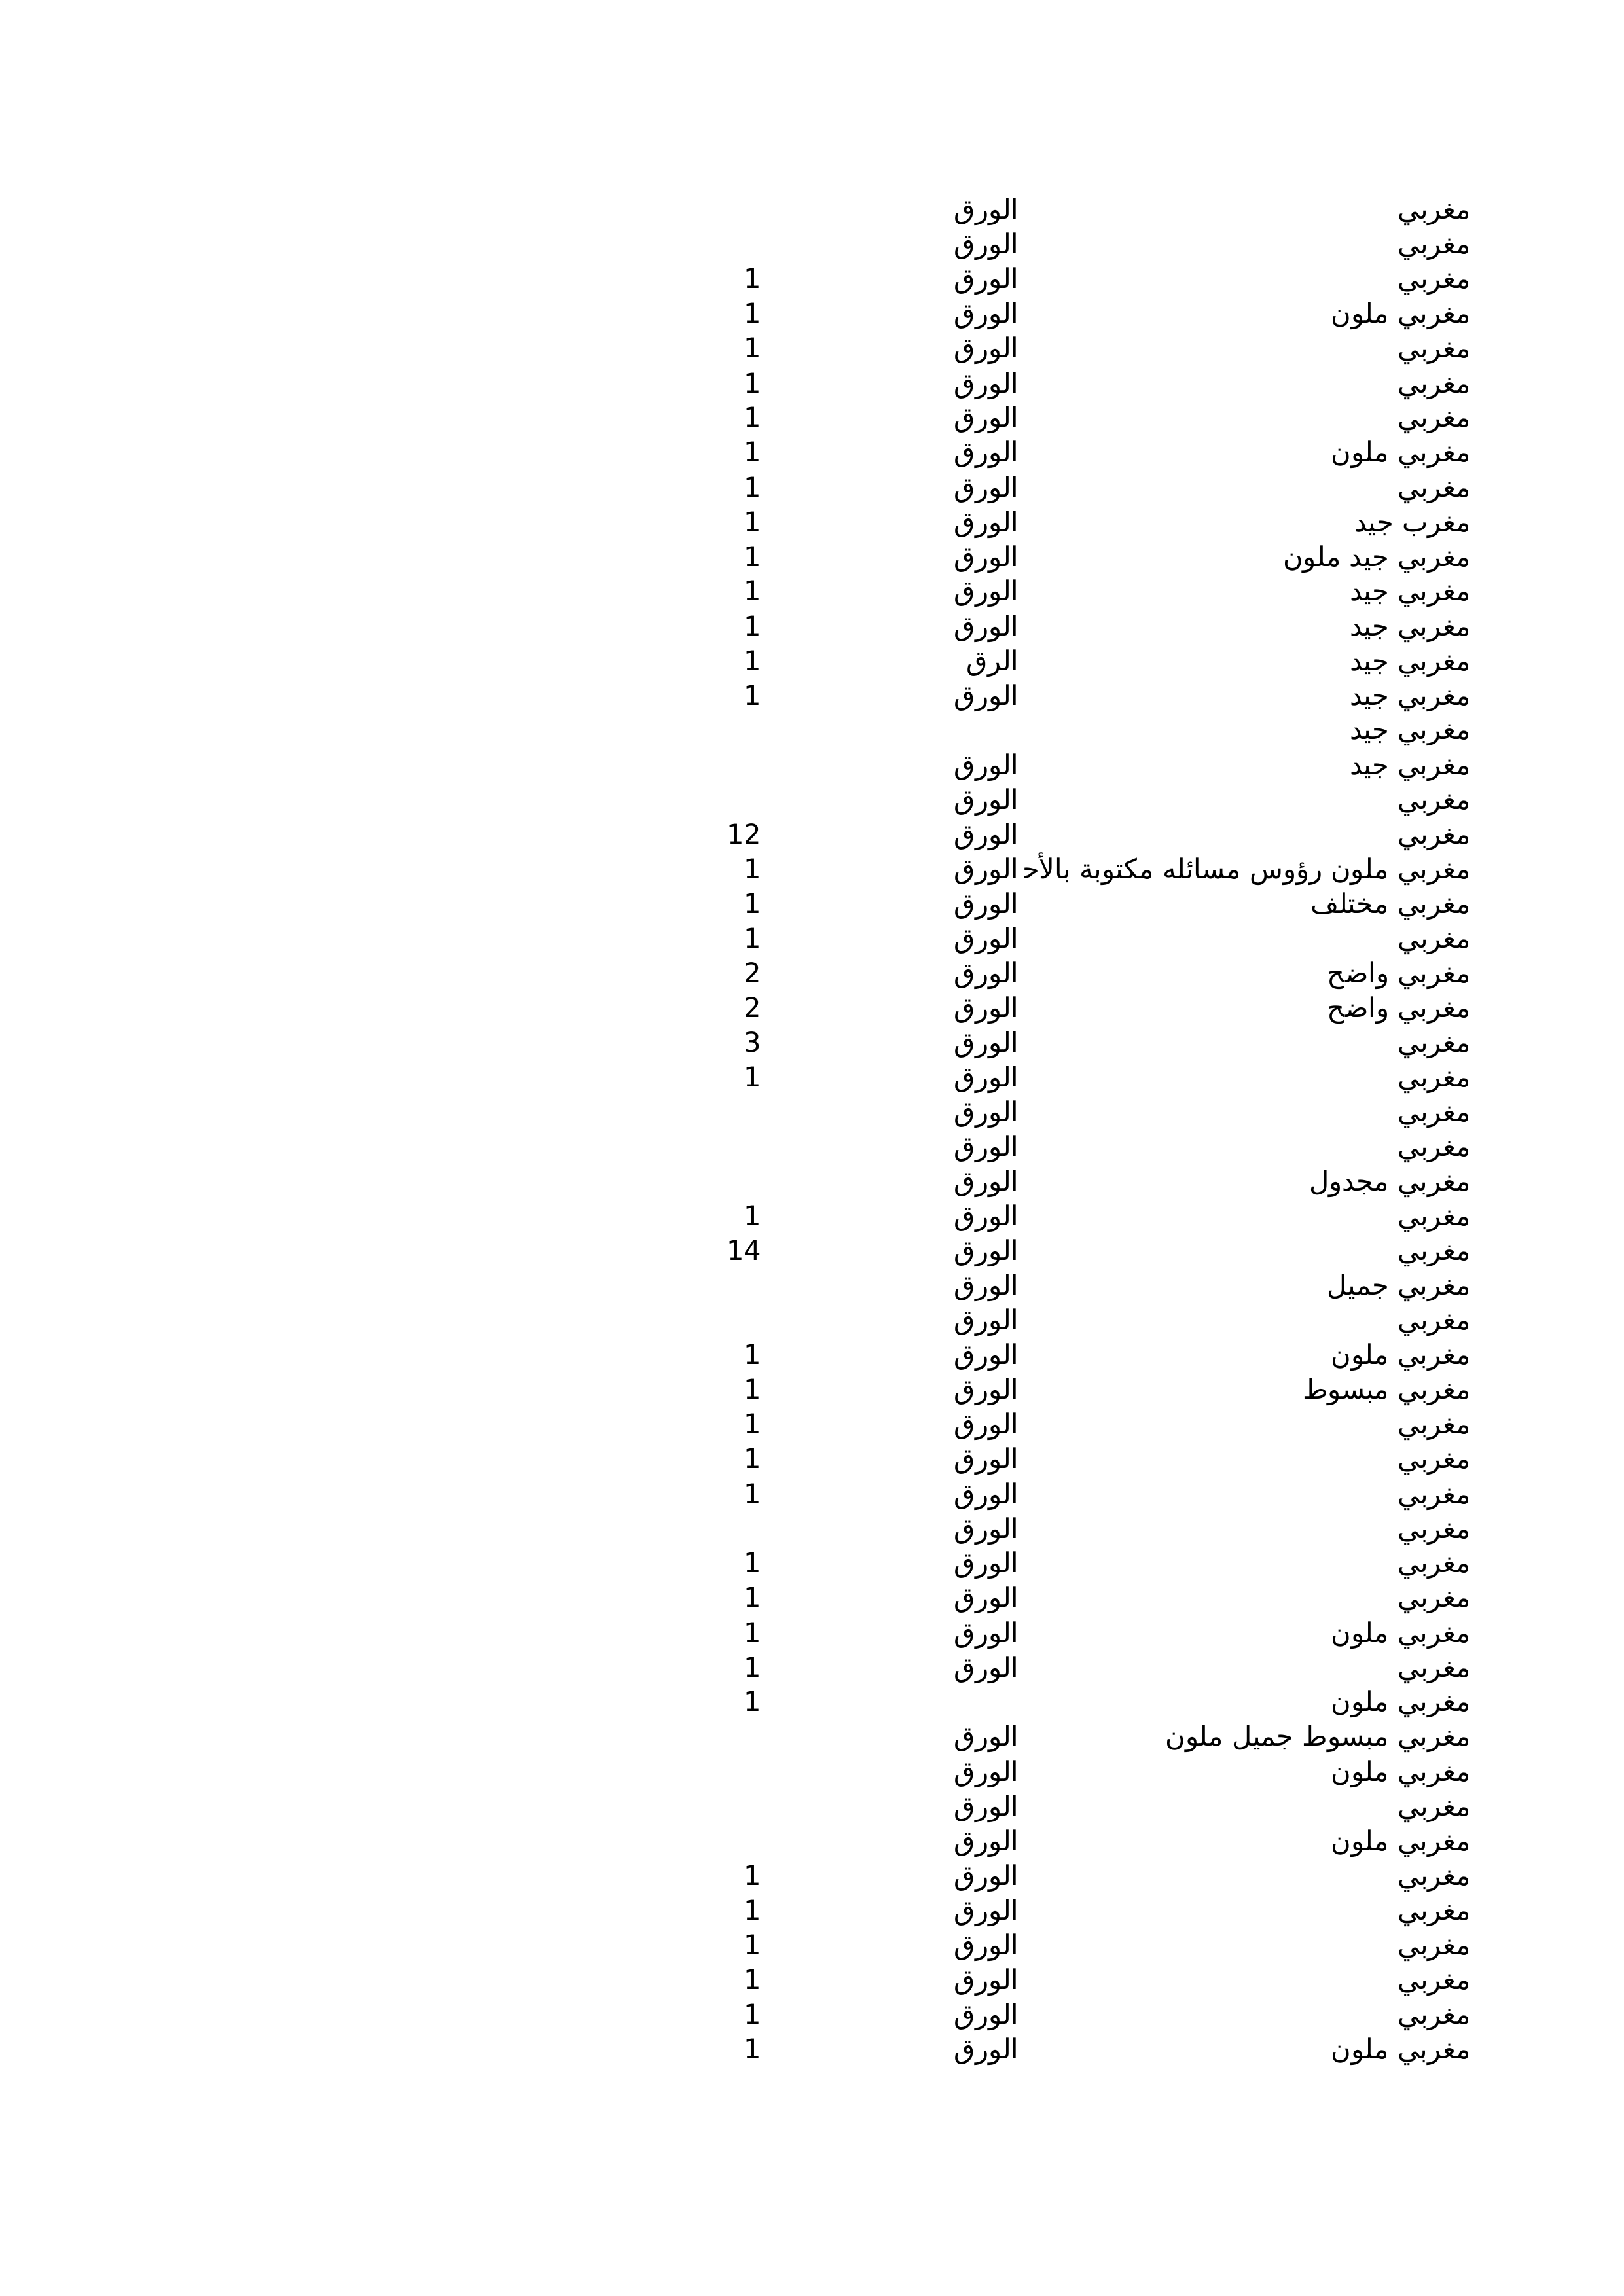 مغربي الورق
مغربي الورق
مغربي الورق 1
مغربي ملون الورق 1
مغربي الورق 1
مغربي الورق 1
مغربي الورق 1
مغربي ملون الورق 1
مغربي الورق 1
مغرب جيد الورق 1
مغربي جيد ملون الورق 1
مغربي جيد الورق 1
مغربي جيد الورق 1
مغربي جيد الرق 1
مغربي جيد الورق 1
مغربي جيد
مغربي جيد الورق
مغربي الورق
مغربي الورق 12
مغربي ملون رؤوس مسائله مكتوبة بالأح الورق 1
مغربي مختلف الورق 1
مغربي الورق 1
مغربي واضح الورق 2
مغربي واضح الورق 2
مغربي الورق 3
مغربي الورق 1
مغربي الورق
مغربي الورق
مغربي مجدول الورق
مغربي الورق 1
مغربي الورق 14
مغربي جميل الورق
مغربي الورق
مغربي ملون الورق 1
مغربي مبسوط الورق 1
مغربي الورق 1
مغربي الورق 1
مغربي الورق 1
مغربي الورق
مغربي الورق 1
مغربي الورق 1
مغربي ملون الورق 1
مغربي الورق 1
مغربي ملون 1
مغربي مبسوط جميل ملون الورق
مغربي ملون الورق
مغربي الورق
مغربي ملون الورق
مغربي الورق 1
مغربي الورق 1
مغربي الورق 1
مغربي الورق 1
مغربي الورق 1
مغربي ملون الورق 1